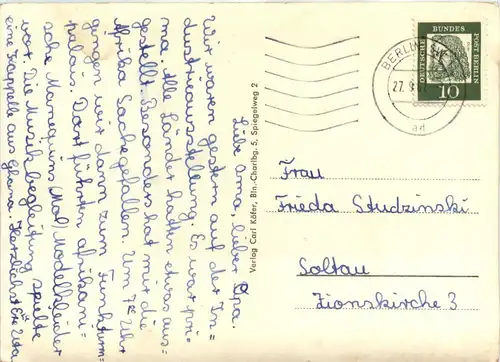 Liebe Oma, lieber Opa.
Wir waren gestern auf der In=
dustrieausstellung. Es war pri=
ma. Alle Länder hatten etwas aus=
gestellt. Besonders hat mir die
Afrika Sache gefallen. Um 7 Uhr
gingen wir dann zum Funkturm=
palais. Dort führten afrikani=
sche Mannequins Mod/Modellkleider
vor. Die Musikbegleitung spielte
eine Kapelle aus Ghana. Herzlichst Eure Uta
Verlag Carl Käfer, Bln.-Charlbg. 5, Spiegelweg 2
DEUTSCHE BUNDES POST BERLIN
10
BERLIN
27. 9.
ad
Frau
Frieda Studzinski
Soltau
Zionskirche 3